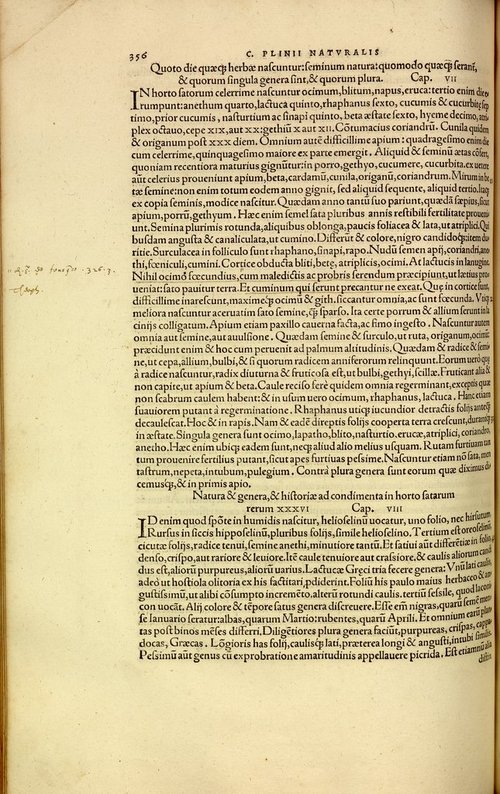 356
C. PLINII NATVRALIS
Quoto die quæq; herbæ nascuntur: seminum natura: quomodo quæq; serant̃,
& quorum singula genera sint, & quorum plura. Cap. VII
IN horto satorum celerrime nascuntur ocimum, blitum, napus, eruca: tertio enim die e
rumpunt: anethum quarto, lactuca quinto, rhaphanus sexto, cucumis & cucurbita sep
timo, prior cucumis, nasturtium ac sinapi quinto, beta æstate sexto, hyeme decimo, atri
plex octauo, cepe XIX, aut XX: gethiũ X aut XII. Cõtumacius coriandrũ. Cunila quidem
& origanum post XXX diem. Omnium autẽ difficillime apium: quadragesimo enim die
cum celerrime, quinquagesimo maiore ex parte emergit. Aliquid & seminũ ætas cõfert,
quoniam recentiora maturius gignũtur: in porro, gethyo, cucumere, cucurbita. ex uetere
aũt celerius proueniunt apium, beta, cardamũ, cunila, origanũ, coriandrum. Mirum in be
tæ semine: non enim totum eodem anno gignit, sed aliquid sequente, aliquid tertio. Itaq;
ex copia seminis, modice nascitur. Quædam anno tantũ suo pariunt, quædã sæpius, sicut
apium, porrũ, gethyum. Hæc enim semel sata pluribus annis restibili fertilitate proueni
unt. Semina plurimis rotunda, aliquibus oblonga, paucis foliacea & lata, ut atriplici. Qui
busdam angusta & canaliculata, ut cumino. Differũt & colore, nigro candidoq;: item du
ritie. Surculacea in folliculo sunt rhaphano, sinapi, rapo. Nudũ semen apij, coriandri, ane
thi, fœniculi, cumini. Cortice obducta bliti, betæ, atriplicis, ocimi. At lactucis in lanugine.
Nihil ocimo fœcundius, cum maledictis ac probris serendum præcipiunt, ut lætius pro
ueniat: sato pauitur terra. Et cuminum qui serunt precantur ne exeat. Quæ in cortice sunt,
difficillime inarescunt, maximeq; ocimũ & gith. siccantur omnia, ac sunt fœcunda. Vtiq;
meliora nascuntur aceruatim sato semine, q̃ sparso. Ita certe porrum & allium serunt in la
cinijs colligatum. Apium etiam paxillo cauerna facta, ac fimo ingesto. Nascuntur autem
omnia aut semine, aut auulsione. Quædam semine & surculo, ut ruta, origanum, ocimũ:
præcidunt enim & hoc cum peruenit ad palmum altitudinis. Quædam & radice & semi
ne, ut cepa, allium, bulbi, & si quorum radicem anniferorum relinquunt. Eorum uero quæ
à radice nascuntur, radix diuturna & fruticosa est, ut bulbi, gethyi, scillæ. Fruticant alia &
non capite, ut apium & beta. Caule reciso ferè quidem omnia regerminant, exceptis quæ
non scabrum caulem habent: & in usum uero ocimum, rhaphanus, lactuca. Hanc etiam
suauiorem putant à regerminatione. Rhaphanus utiq; iucundior detractis folijs anteq̃
decaulescat. Hoc & in rapis. Nam & eadẽ direptis folijs cooperta terra crescunt, durantq;
in æstate. Singula genera sunt ocimo, lapatho, blito, nasturtio. erucæ, atriplici, coriandro,
anetho. Hæc enim ubiq; eadem sunt, neq; aliud alio melius usquam. Rutam furtiuam tan
tum prouenire fertilius putant, sicut apes furtiuas pessime. Nascuntur etiam nõ sata, men
tastrum, nepeta, intubum, pulegium. Contrà plura genera sunt eorum quæ diximus di
cemusq;, & in primis apio.
Natura & genera, & historiæ ad condimenta in horto satarum
rerum XXXVI Cap. VIII
ID enim quod spõte in humidis nascitur, helioselinũ uocatur, uno folio, nec hirsutum.
Rursus in siccis hipposelinũ, pluribus folijs, simile helioselino. Tertium est oreoselinũ,
cicutæ folijs, radice tenui, semine anethi, minutiore tantũ. Et satiui aũt differẽtiæ in folio
denso, crispo, aut rariore & leuiore. Itẽ caule tenuiore aut crassiore, & caulis aliorum candi
dus est, aliorũ purpureus, aliorũ uarius. Lactucæ Græci tria fecere genera: Vnũ lati caulis,
adeò ut hostiola olitoria ex his factitari, pdiderint. Foliũ his paulo maius herbaceo & an
gustissimũ, ut alibi cõsumpto incremẽto, alterũ rotundi caulis. tertiũ sessile, quod laconi
con uocãt. Alij colore & tẽpore satus genera discreuere. Esse em̃ nigras, quarũ semẽ men
se Ianuario seratur: albas, quarum Martio: rubentes, quarũ Aprili. Et omnium earũ plan
tas post binos mẽses differri. Diligẽtiores plura genera faciũt, purpureas, crispas, cappa
docas, Græcas. Lõgioris has folij, caulisq; lati, præterea longi & angusti, intubi similis.
Pessimũ aũt genus cũ exprobratione amaritudinis appellauere picrida. Est etiamnũ alia
distin